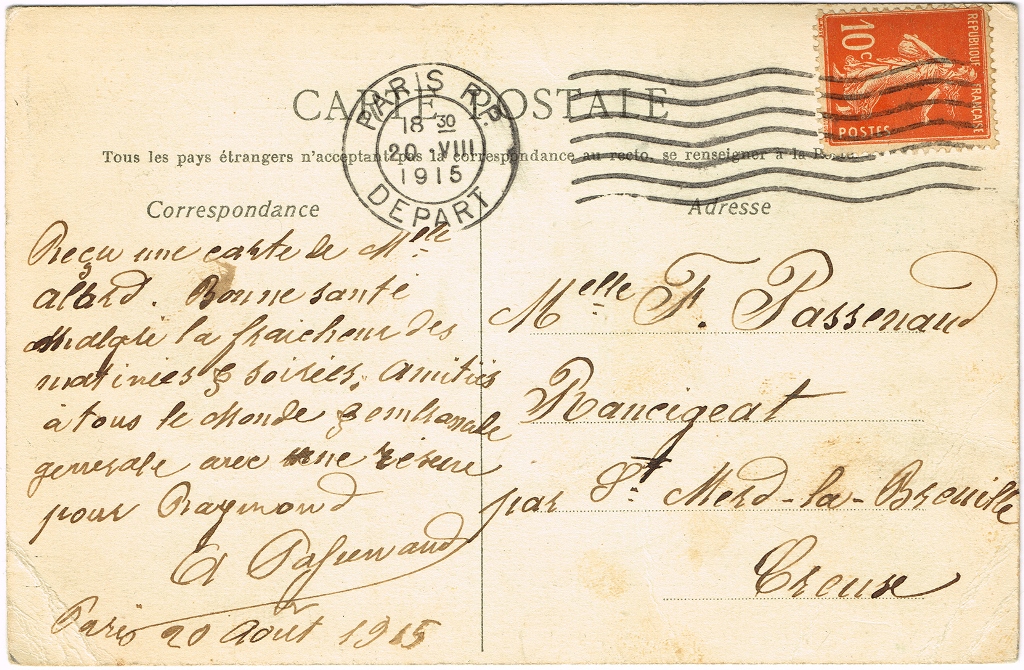 CARTE POSTALE
Tous les pays étrangers n'acceptant pas la correspondance au recto, se renseigner à la Poste.
PARIS R.P.
18 30
20 · VIII
1915
DEPART
REPUBLIQUE FRANÇAISE
10c
POSTES
Correspondance
Reçu une carte de Melle
Allard. Bonne santé
malgré la fraicheur des
matinées & soirées. Amitiés
à tous le monde & embrassade
generale avec une réserve
pour Raymond
Passenaud
Paris 20 Août 1915
Adresse
Melle F. Passenaud
Rancigeat
par St Merd-la-Breuille
Creuse